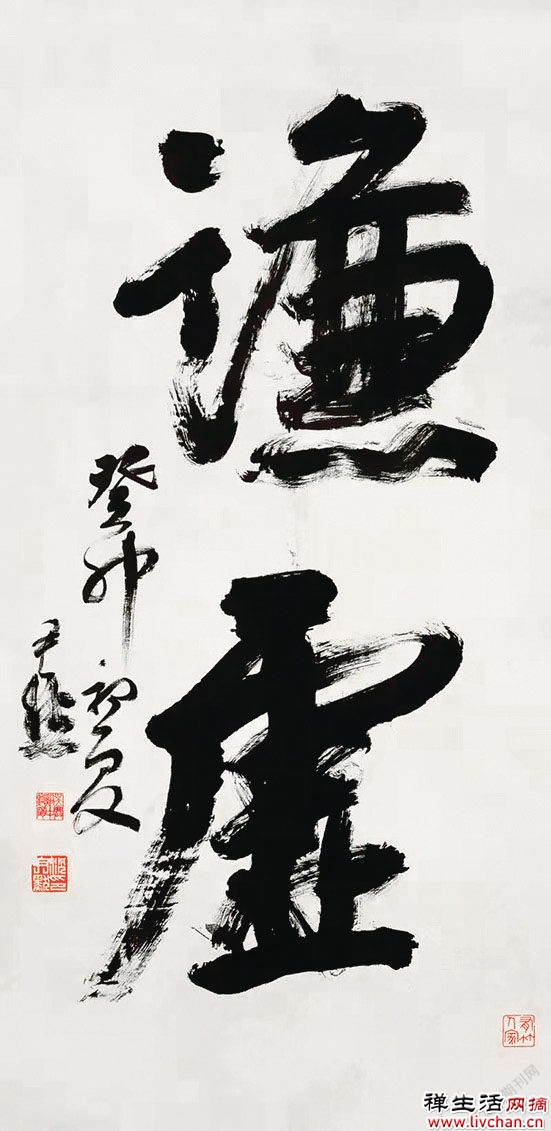 谦虚
癸卯初夏
禅生活网摘
www.livchan.cn